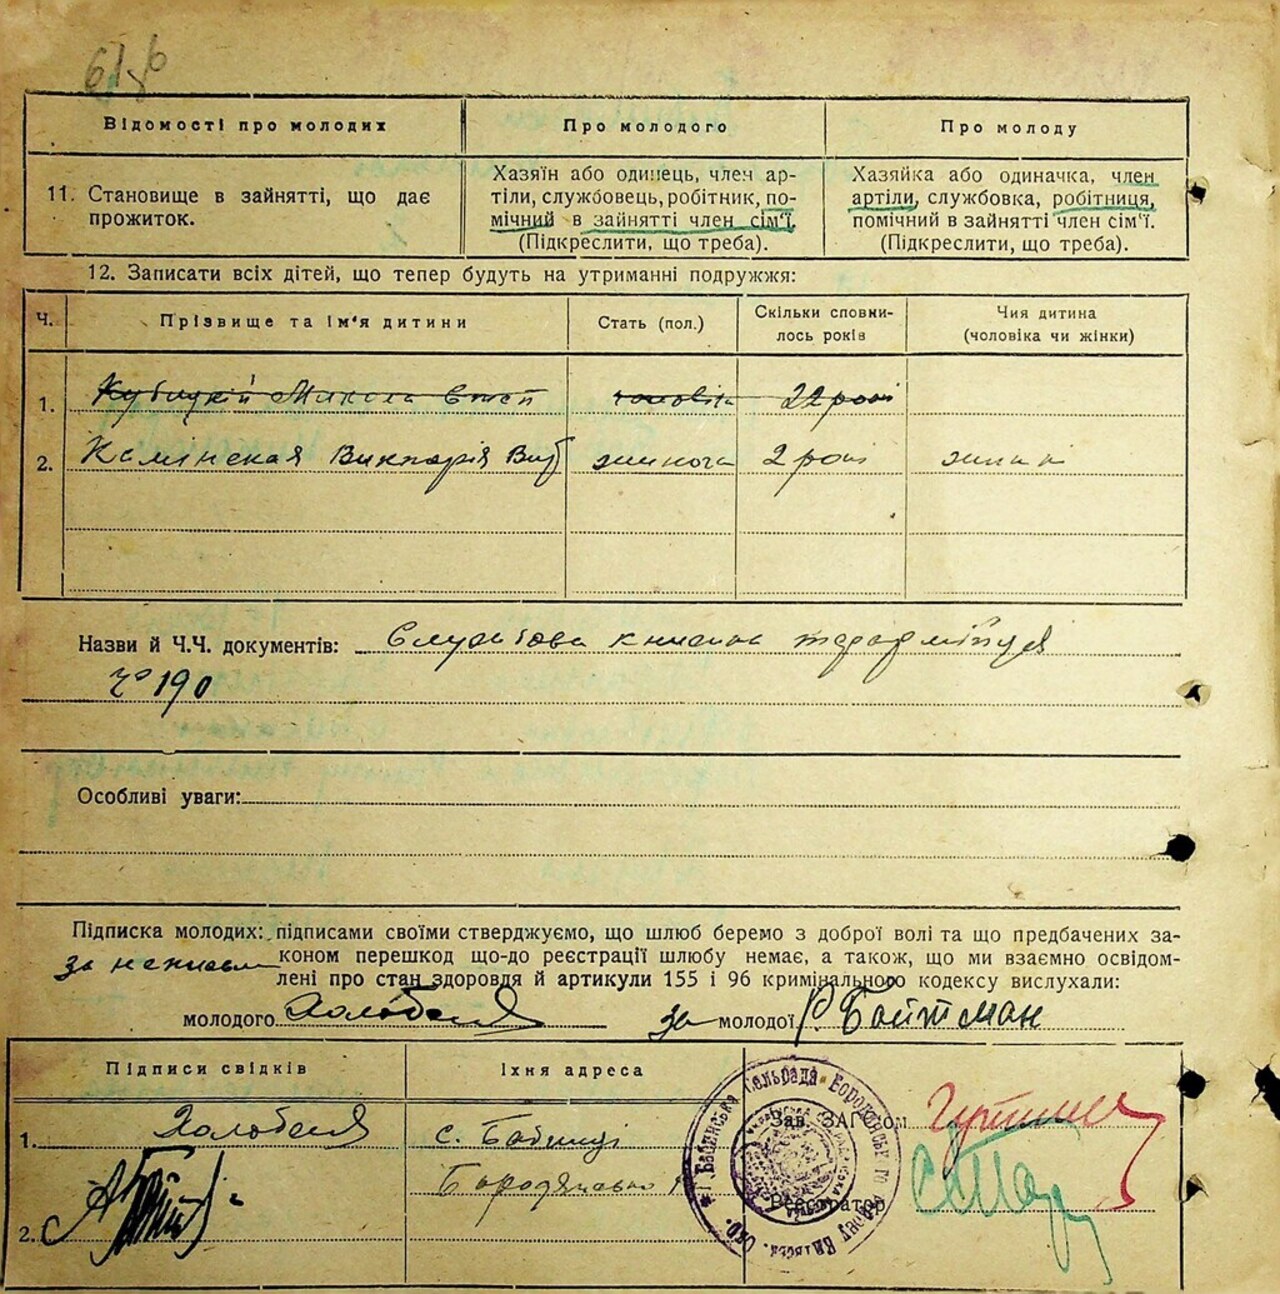 Відомості про молодих
Про молодого
Про молоду
11. Становище в зайнятті, що дає
прожиток.
Хазяїн або одинець, член ар-
тіли, службовець, робітник, по-
мічний в зайнятті член сім'ї.
(Підкреслити, що треба).
Хазяйка або одиначка, член
артіли, службовка, робітниця,
помічний в зайнятті член сім'ї.
(Підкреслити, що треба).
12. Записати всіх дітей, що тепер будуть на утриманні подружжя:
Ч.
Прізвище та ім'я дитини
Стать (пол.)
Скільки сповни-
лось років
Чия дитина
(чоловіка чи жінки)
1. Кубицкій Микола 22
2. Камінская Викторія жиноча 2
Назви й Ч.Ч. документів: Службова книжка
190
Особливі уваги:
Підписка молодих: підписами своїми стверджуємо, що шлюб беремо з доброї волі та що предбачених за-
коном перешкод що-до реєстрації шлюбу немає, а також, що ми взаємно освідом-
лені про стан здоровля й артикули 155 і 96 кримінального кодексу вислухали:
молодого за молодої Бойтман
Підписи свідків
Їхня адреса
Зав. ЗАГС'ом
1. с. Бабинці
Реєстратор
2.